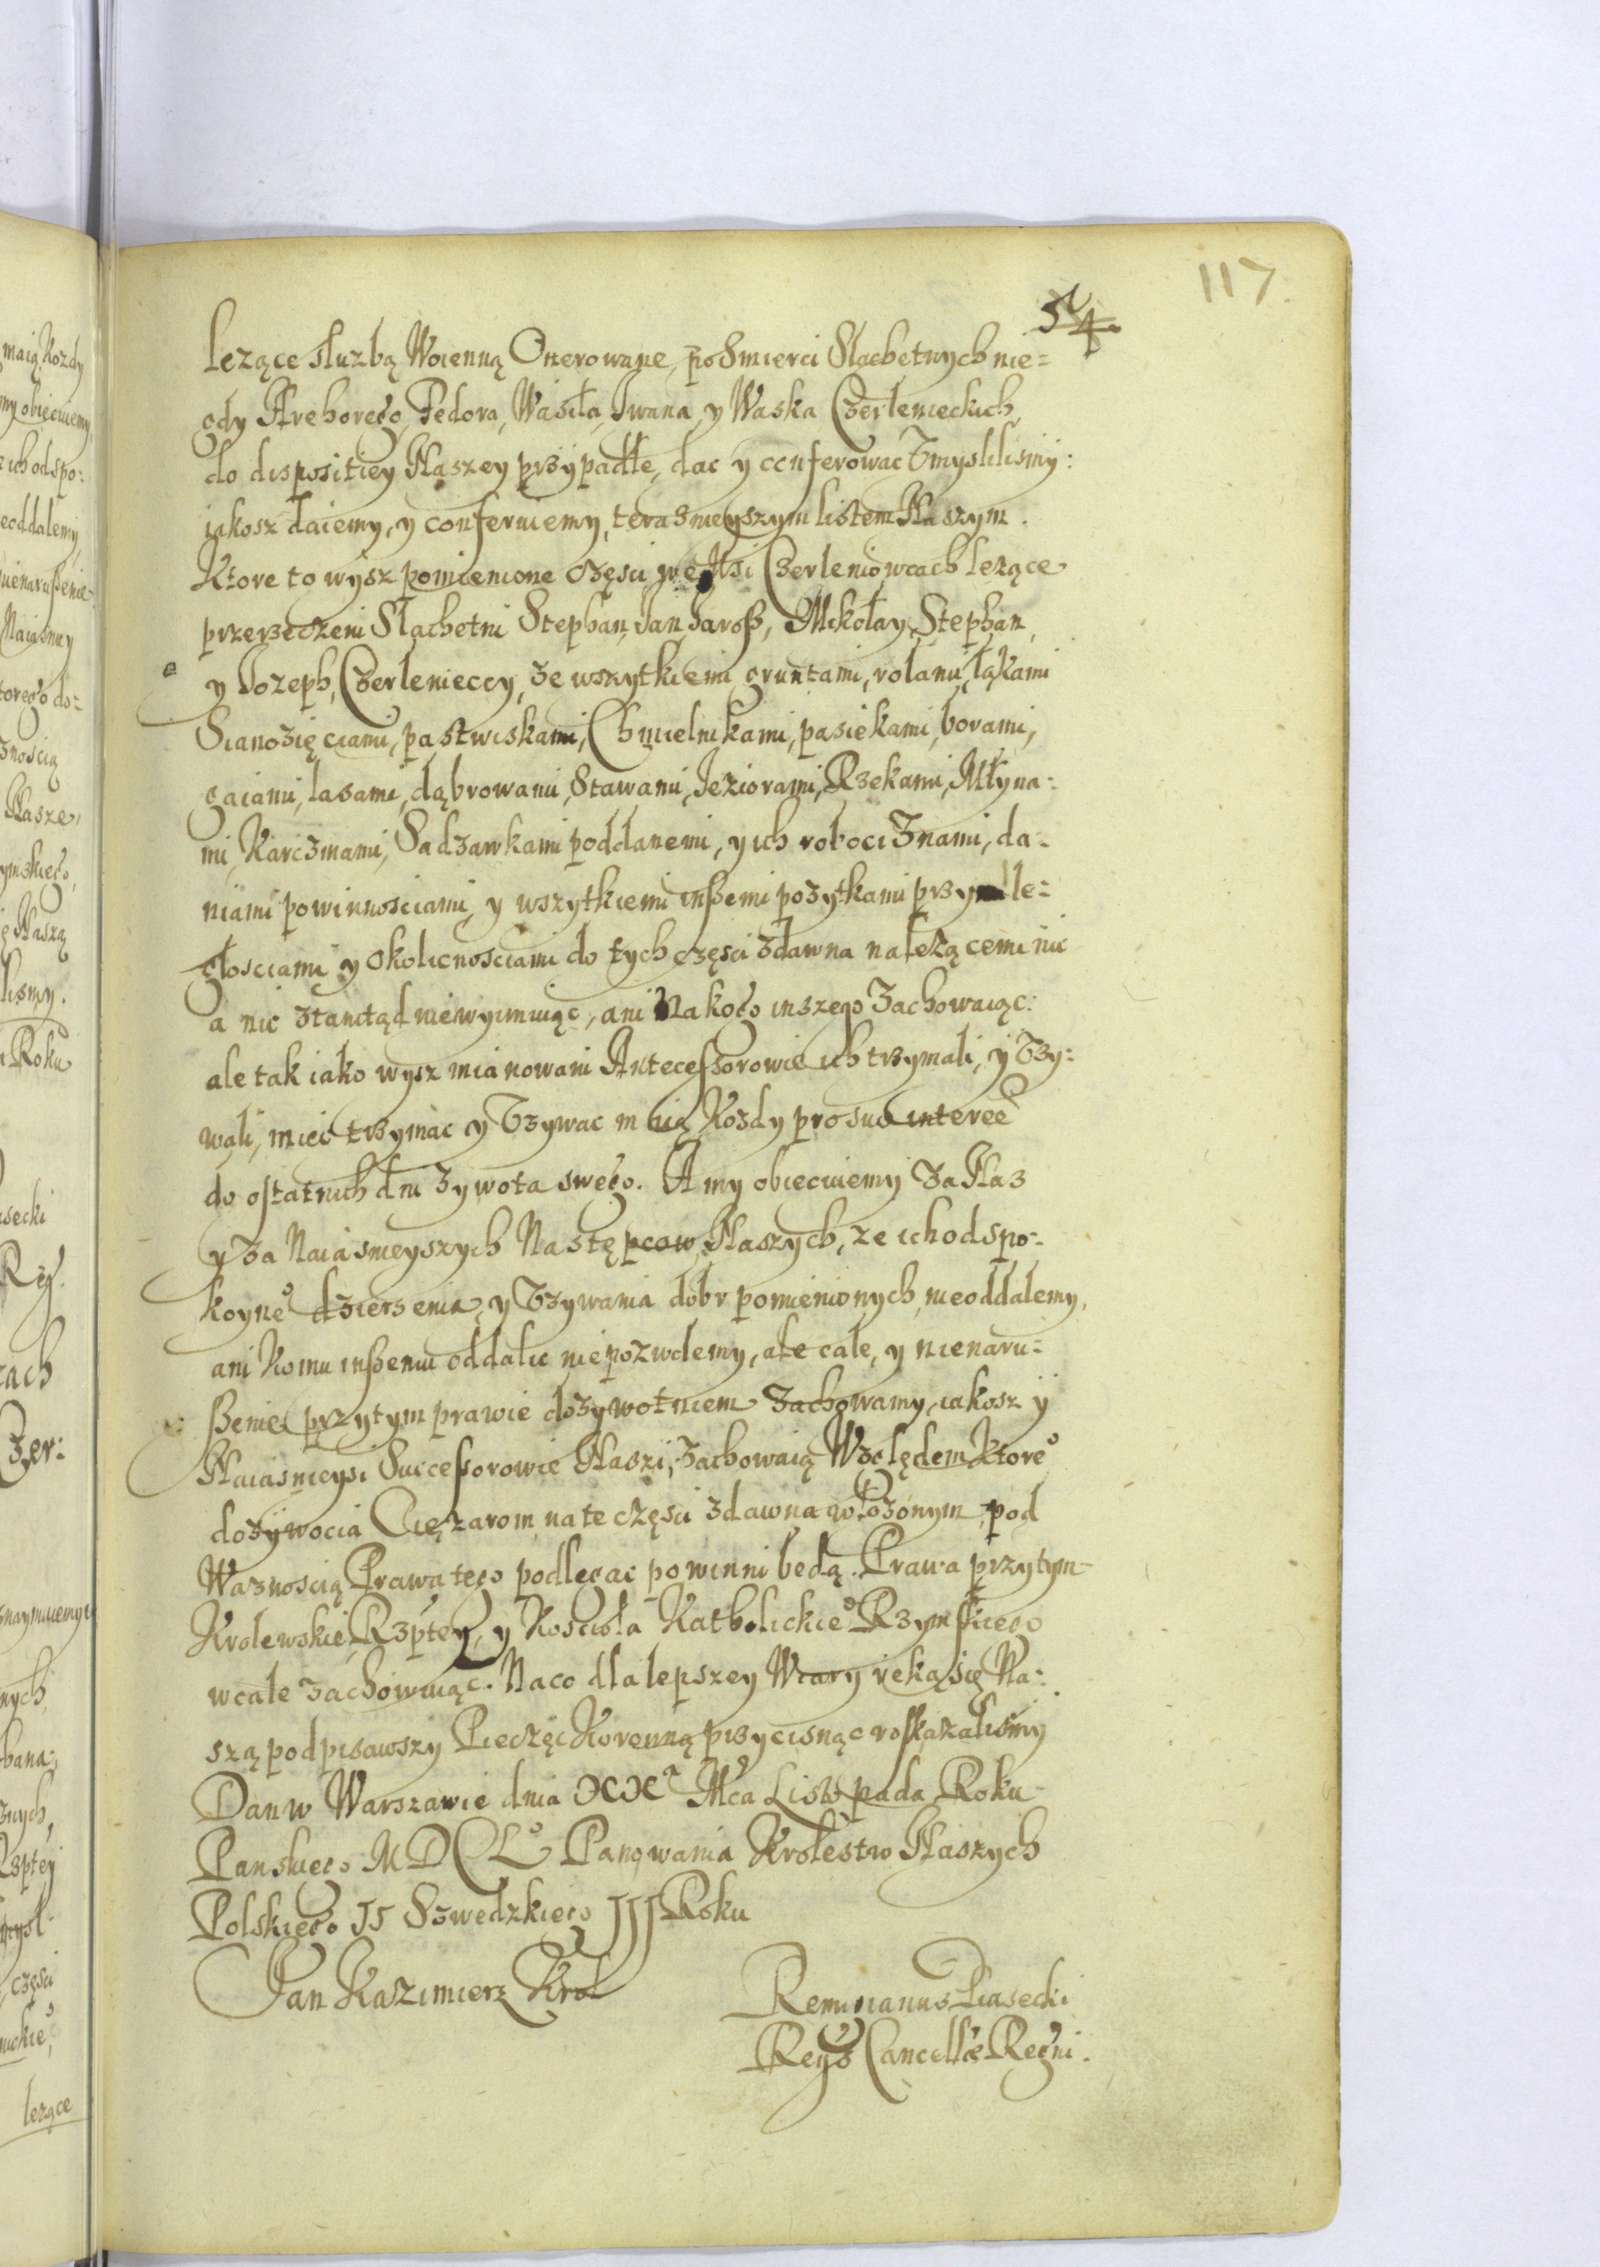 117
54
lezące służbą Woienną Onerowane, po Smierci Slachetnych nie=
gdy Hrehorego, Fedora, Wasila, Iwana, y Waska Czerlenieckich,
do dispositiey Naszey przypadłe, dac y conferowac Umyslilismy:
iakosz daiemy, y conferuiemy, teraznieyszym listem Naszym.
Ktore to wysz pomienione części we Wsi Czerleniowcach lezące
przerzeczeni Slachetni Stephan, Jan, Jarosz, Mikołay, Stephan,
y Jozeph, Czerlenieccy, ze wszytkiemi gruntami, rolami, łąkami
Sianozięciami, pastwiskami, Chmielnikami, pasiekami, borami,
gaiami, lasami, dąbrowami, Stawami, Jeziorami, Rzekami, Młyna=
mi, Karczmami, Sadzawkami poddanemi, y ich robociznami, da=
niami powinnosciami, y wszytkiemi inszemi pozytkami przyle=
głosciami y okolicnosciami do tych części zdawna nalezącemi nic
a nic ztamtąd niewyimuiąc, ani Na kogo inszego Zachowaiąc:
ale tak iako wysz mianowani Antecessorowie ich trzymali, y Uzy=
wali, miec trzymac y Uzywac maią Kozdy pro suo interee
do ostatnich dni zywota swego. A my obiecuiemy Za Nas
y Za Naiasnieyszych Następcow Naszych, ze ich od spo=
koyne° dzierzenia, y Uzywania dobr pomienionych, nieoddalemy,
ani Komu inszemu oddalic niepozwolemy, ale cale, y nienaru=
szenie przytym prawie dozywotniem Zachowamy, iakosz y
Naiasnieysi Successorowie Naszi, Zachowaią Względem Ktore°
dozywocia Cięzarom na te części zdawna włozonym, pod
Waznoscią Prawa tego podlegac powinni będą. Prawa przytym
Krolewskie, Rzptey, y Koscioła Katholickie° Rzymskiego
wcale zachowuiąc. Na co dla lepszey Wiary ręką się Na=
szą podpisawszy Pieczęc Koronną przycisnąc roskazalismy
Dan w Warszawie dnia XXa Mca Listopada Roku
Panskiego MDCL° Panowania Krolestw Naszych
Polskiego II Szwedzkiego III Roku
Jan Kazimierz Krol
Remigianus Piasecki
Regs Cancellæ Regni.